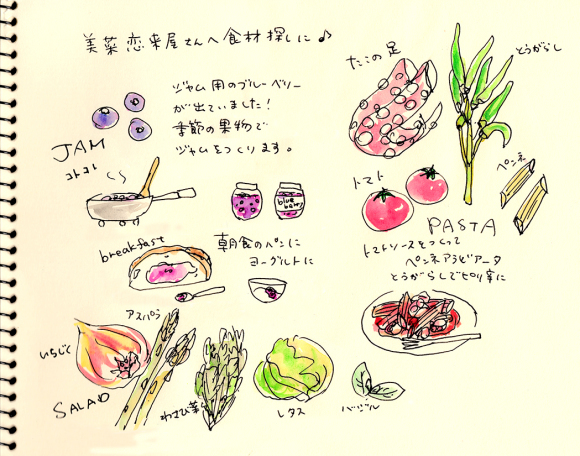 美菜恋来屋さんへ食材探しに♪
ジャム用のブルーベリー
が出ていました！
季節の果物で
ジャムをつくります。
JAM
コトコト
blue berry
breakfast
朝食のパンに
ヨーグルトに
たこの足
とうがらし
トマト
ペンネ
PASTA
トマトソースをつくって
ペンネアラビアータ
とうがらしでピリ辛に
いちじく
アスパラ
SALAD
わさび菜
レタス
バジル